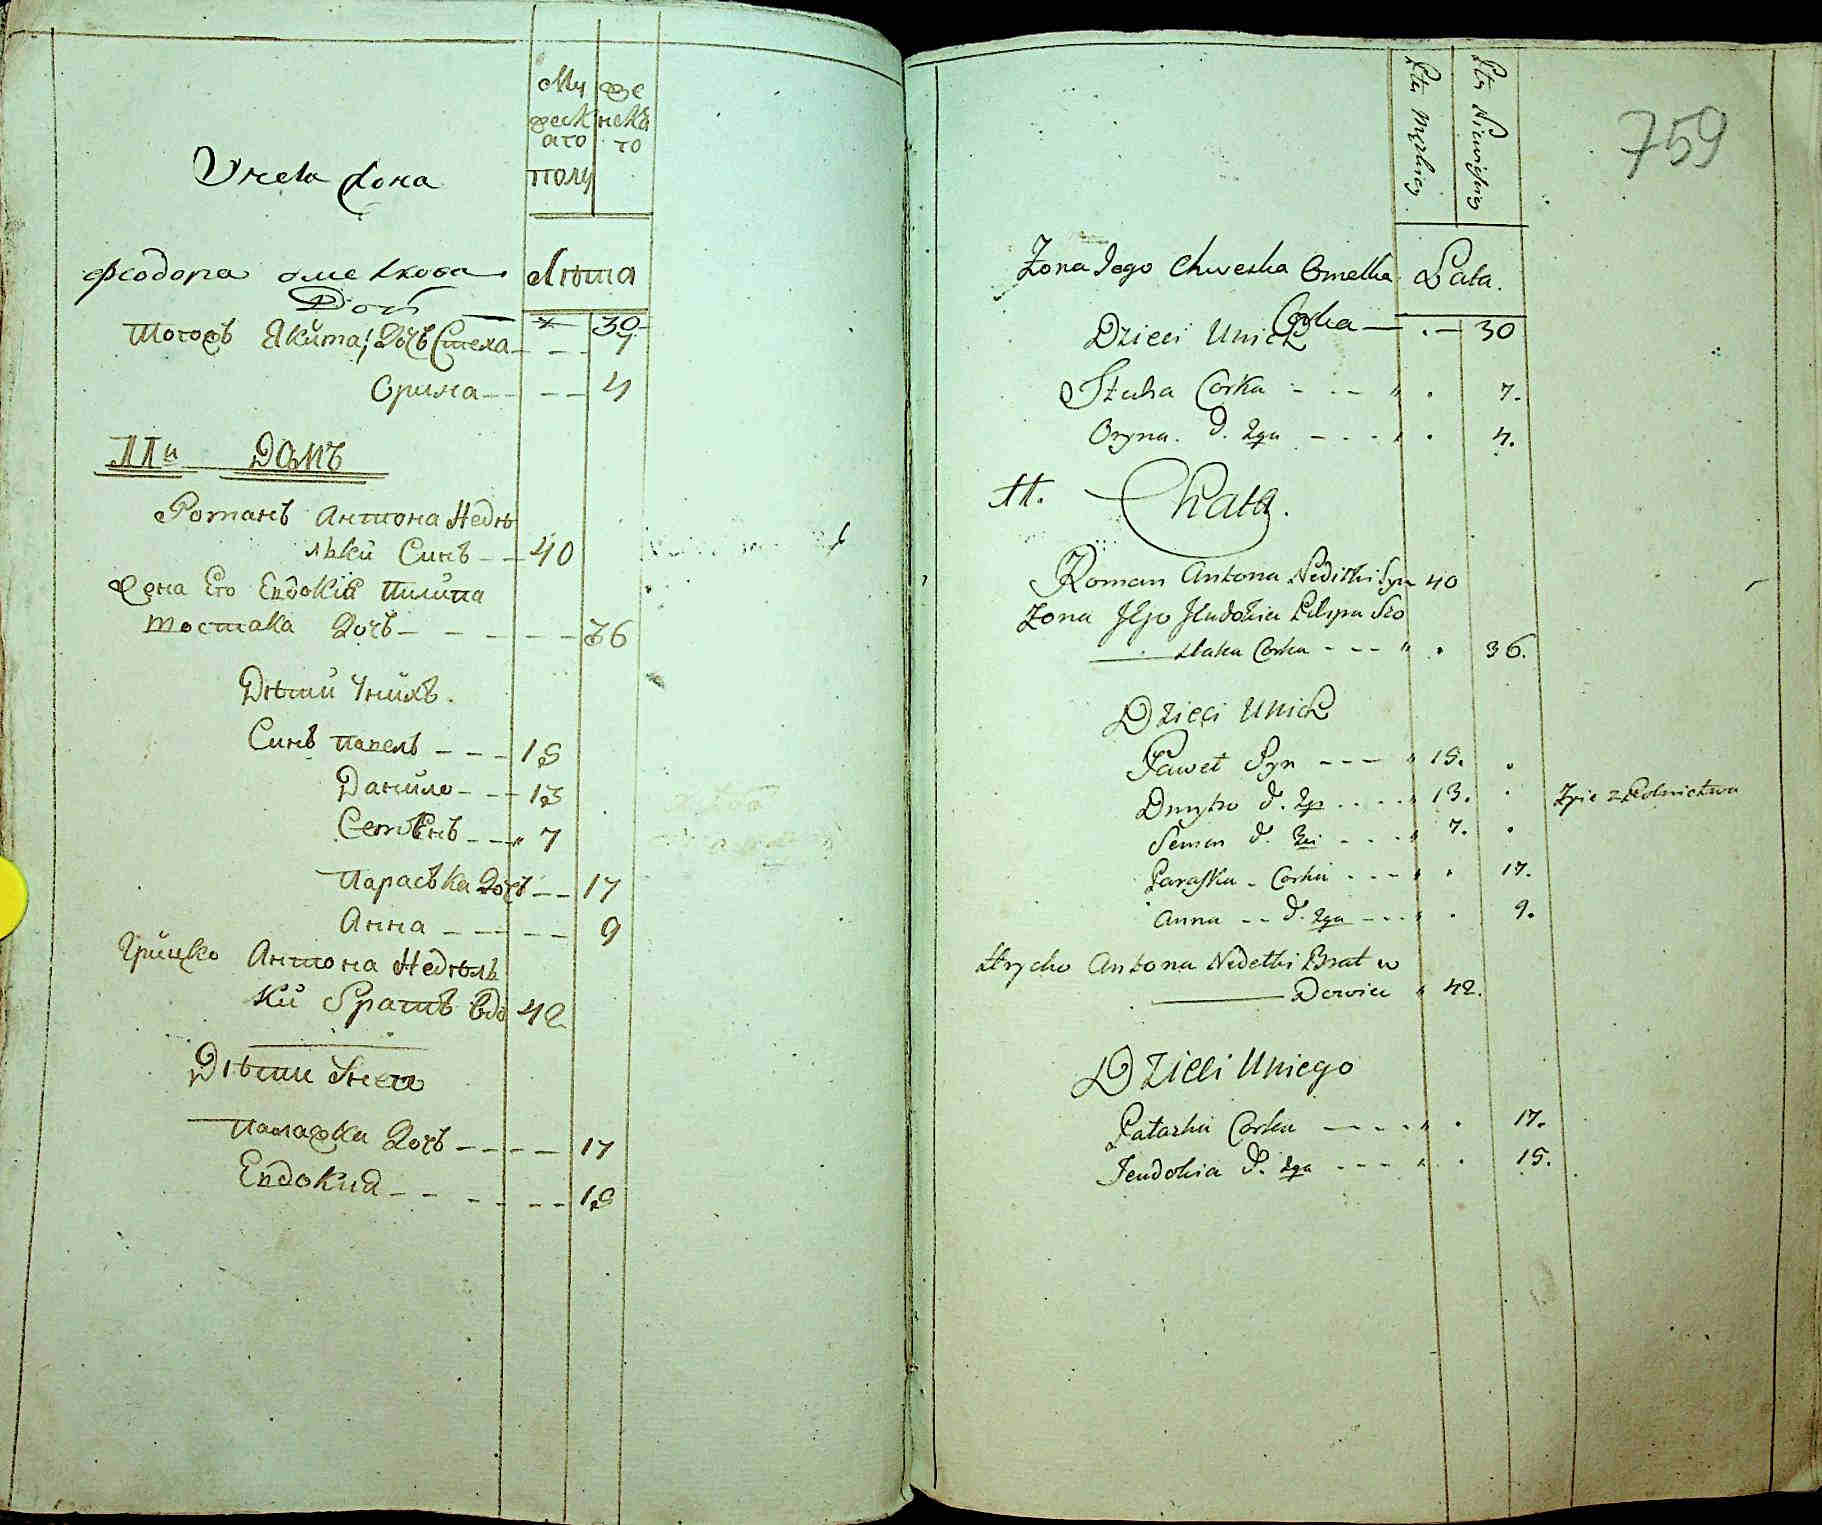 Му
жеск
аго
полу
же
нска
го
Унего жона
Феодора омелкова
Доч
Лѣта
30
тогожъ Якима; Дочъ Стеха - - - 7
Орина - - - - 4
11й ДОМЪ
Романъ Антона Недѣ
льки Синъ - - 40
Жена Его Евдокія Пилипа
Шостака Дочъ - - - - - 36
Дѣти Унихъ.
Синъ павелъ - - - 15
Данило - - - 13
Семенъ - - - 7
Параська Дочъ - - 17
Анна - - - - - 9
Грицко Антона Недѣль
ки братъ вдо 42
Дѣти Унего
палажка Дочъ - - - - - 17
Евдокия - - - - - - 15
759
Płci Męzkiey
Płci Niewieściey
Zona Jego Chweska Omelka
Corka - . - 30
Lata.
Dzieci Unich
Stucha Corka - - - " . 7.
Oryna. d. 2ga - - - - " . 4.
11. Chata.
Roman Antona Nedilki Syn 40
Zona Jego Jeudokia Pilipa Szo
staka Corka - - - " . 36.
Dzieci Unich
Paweł Syn - - - " 15. .
Dmytro d. 2gi - - - - " 13. .
Semen d. 3ci - - - - " 7. .
Paraska - Corka - - - " . 17.
Anna - - d. 2ga - - - " . 9.
Hrycko Antona Nedelki Brat w
Dowiec " 42.
Dzieci Uniego
Pałazka Corka - - - - " . 17.
Jeudokia d. 2ga - - - " . 15.